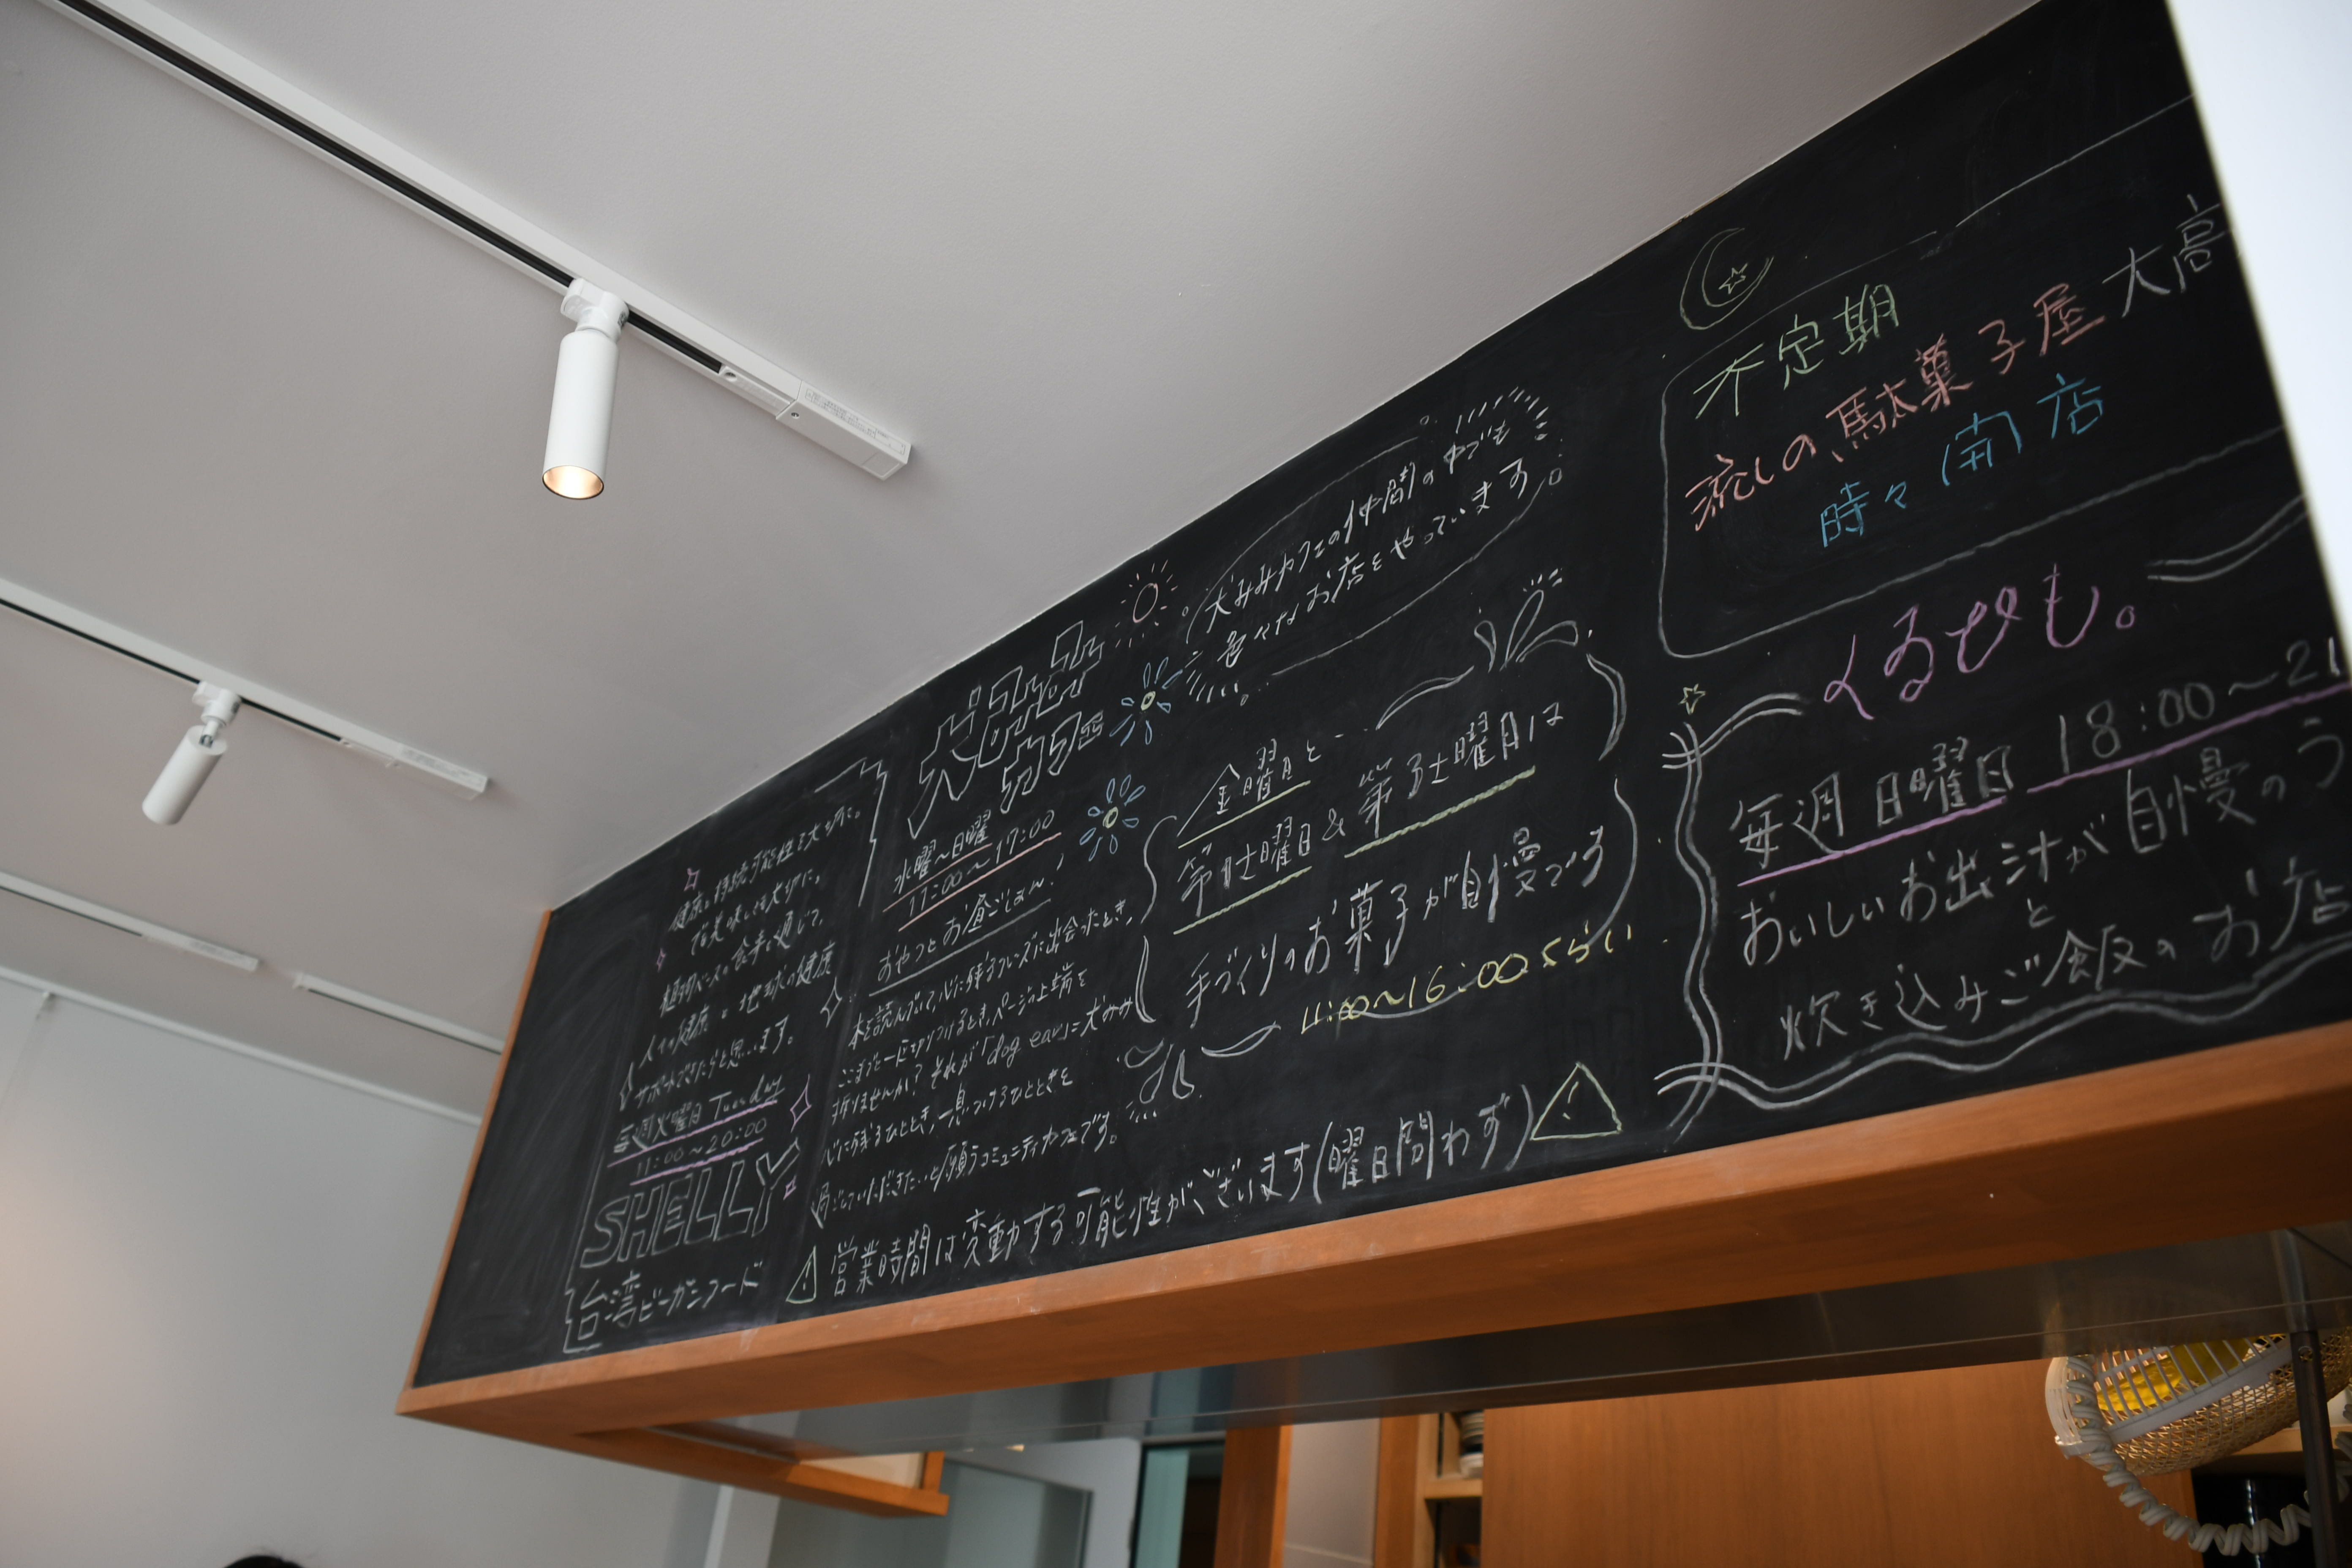 健康と持続可能性を大切に。
でも美味しさは大切に。
植物ベースの食事を通じて、
人々の健康と地球の健康
サポートできたらと思います。
毎週火曜日 Tuesday
11:00～20:00
SHELLY
台湾ビーガンフード
犬耳みみ
カフェ
水曜～日曜
11:00～17:00
おやつとお昼ごはん!
本を読んでいて、心に残るフレーズに出会ったとき、
ページの上端を
折りませんか? それが「dog ear」=犬みみ
心に残るひととき、一息つけるひとときを
過ごしていただきたいと願うコミュニティカフェです。
犬みみカフェの仲間の中でも
色々なお店をやっています。
金曜日と、
第1土曜日 & 第3土曜日は
手づくりのお菓子が自慢です
11:00～16:00くらい
営業時間は変動する可能性がございます(曜日問わず)
不定期
流しの駄菓子屋大高
時々(開)店
くるむも。
毎週日曜日 18:00～21
おいしいお出汁が自慢のう
と
炊き込みご飯のお店